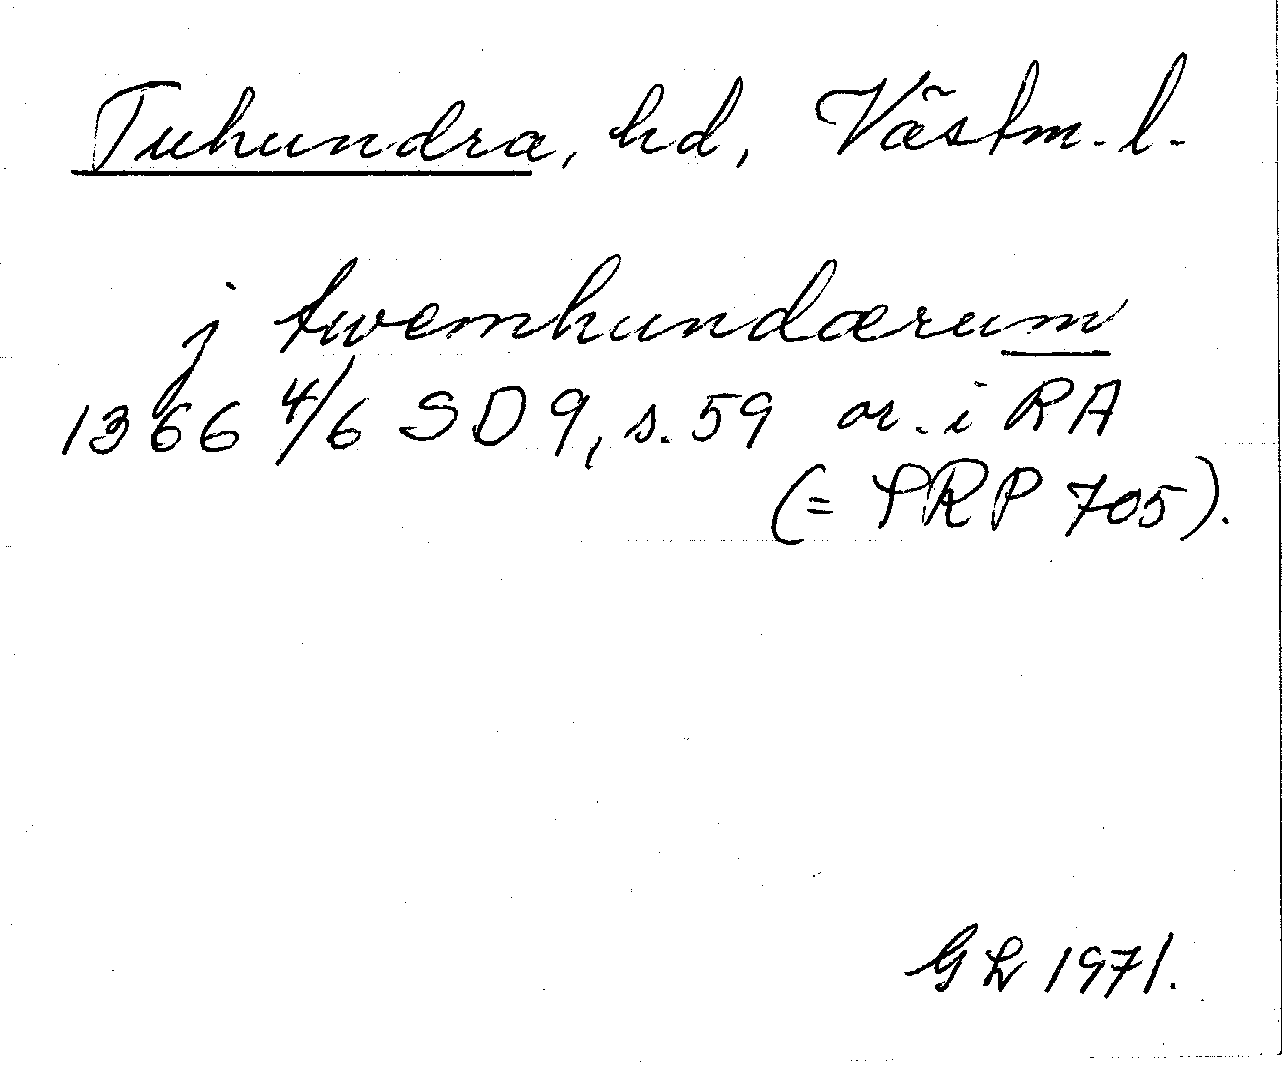 Tuhundra, hd, Västm. l.
j twemhundærum
1366 4/6 SD 9, s. 59 or. i RA
(= PRP 705).
GL 1971.